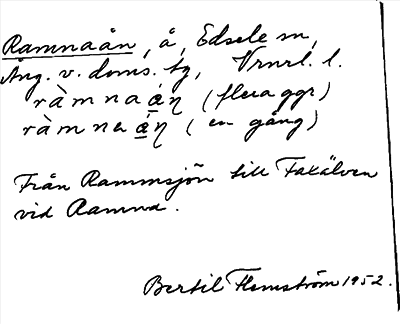 Ramnaån, å, Edsele sn,
Ång. v. doms. tg, Vrnrl. l.
ràmnaá̱ŋ (flera ggr)
ràmnaá̱ŋ (en gång)
Från Rammsjön till Faxälven
vid Ramna.
Bertil Flemström 1952.